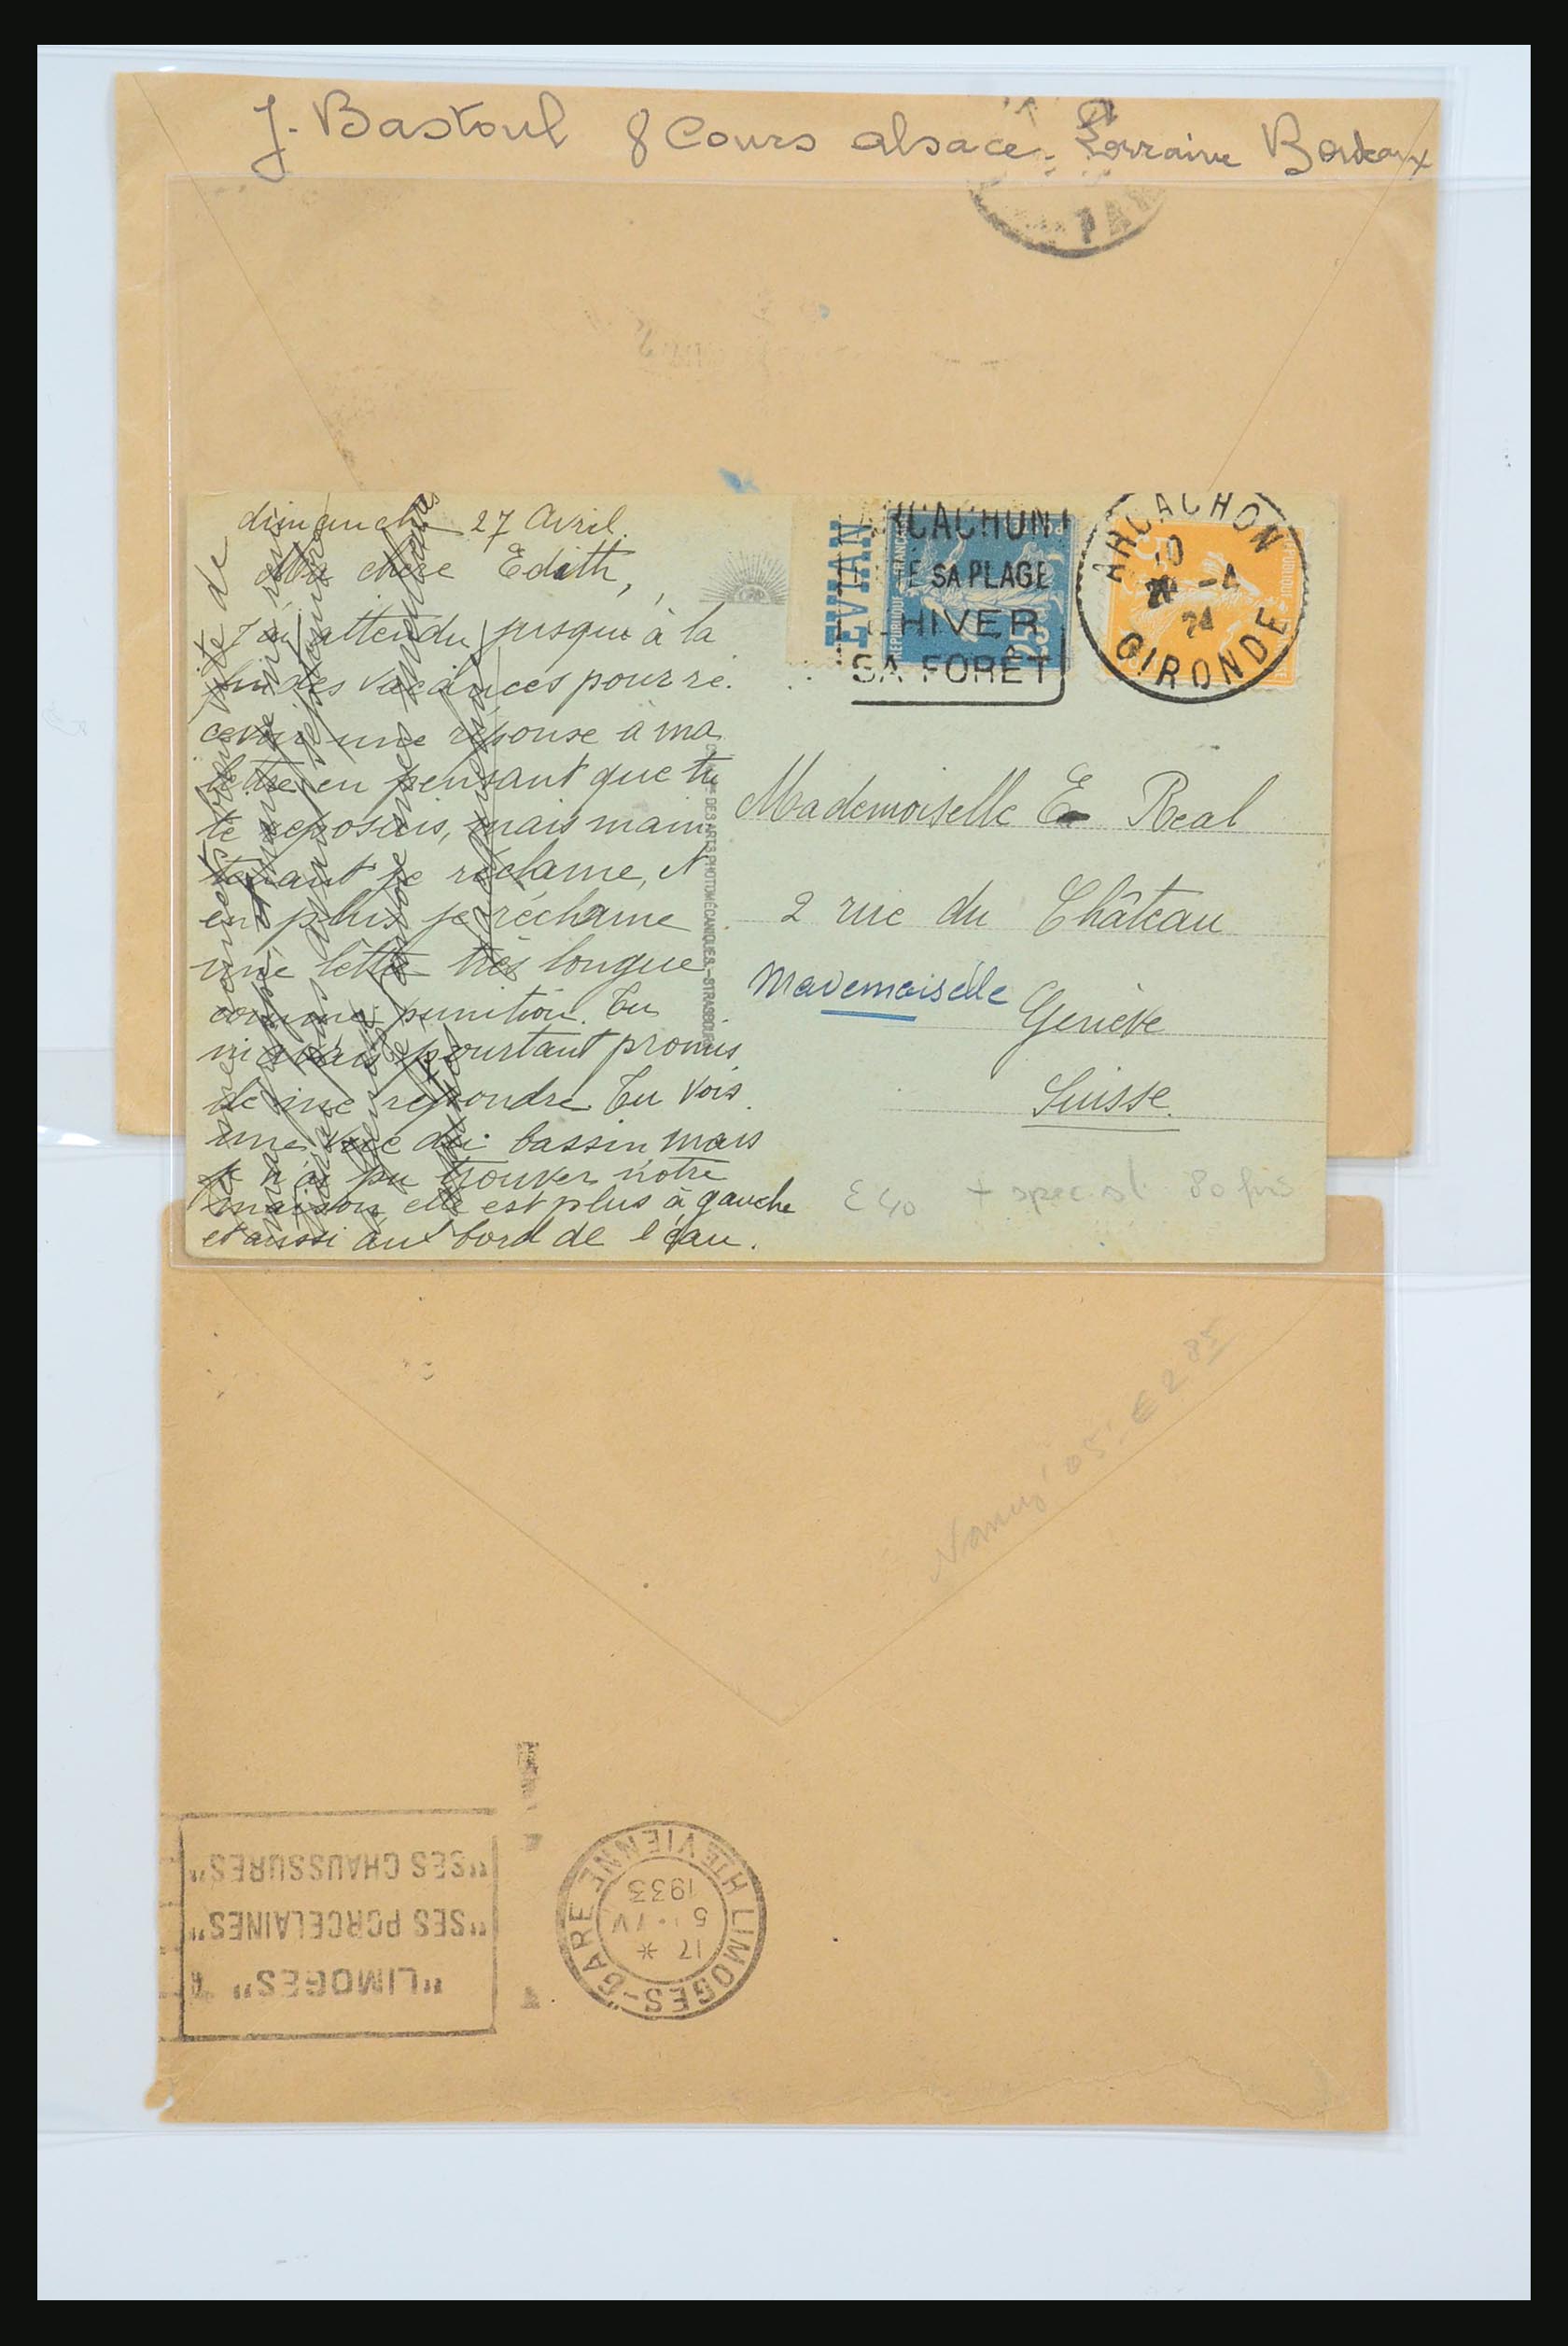 J. Bastoul 8 Cours alsace-Lorraine Bordeaux
PAR
dimanche 27 Avril.
Ma chère Edith,
J'ai attendu jusqu'à la
fin des vacances pour re-
cevoir une réponse à ma
lettre en pensant que tu
te reposais, mais main-
tenant je réclame, et
en plus je réclame
une lettre très longue
comme punition. Tu
m'avais pourtant promis
de me répondre. Tu vois
une vue du bassin, mais
je n'ai pu trouver notre
maison, elle est plus à gauche
et aussi au bord de l'eau.
vite de
DES ARTS PHOTOMÉCANIQUES.-STRASBOURG
EVIAN
REPUBLIQUE FRANCAISE
25
RCACHON
SA PLAGE
HIVER
SA FORÊT
ARCACHON
10
-4
24
GIRONDE
Mademoiselle E Real
2 rue du Château
Mademoiselle
Genève
Suisse
E 40 + spec. st. 80 frs
Nancy '05' € 2 85
"LIMOGES"
"SES PORCELAINES"
"SES CHAUSSURES"
LIMOGES-GARE
HTE VIENNE
17 *
5 - IV
1933